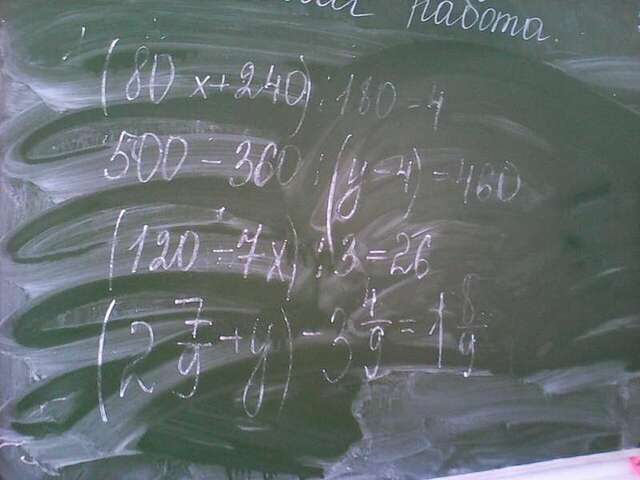 работа.
(80 x + 240) : 180 = 4
500 - 360 : (y - 4) = 460
(120 - 7x) : 3 = 26
(2 7/9 + y) - 3 4/9 = 1 8/9